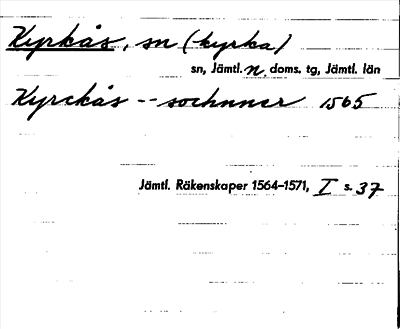 Kyrkås, sn (kyrka)
sn, Jämtl. n. doms. tg, Jämtl. län
Kyrckås -- sochnner 1565
Jämtl. Räkenskaper 1564–1571, I s. 37